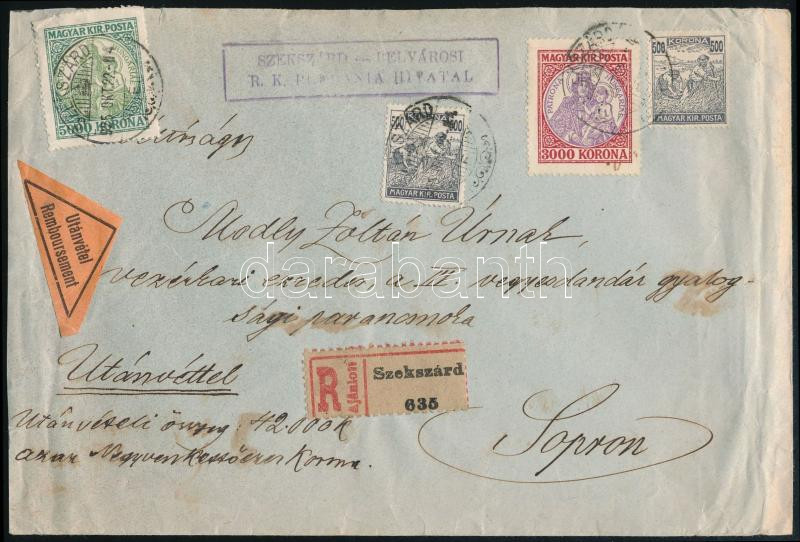 MAGYAR KIR. POSTA
5000 KORONA
SZEKSZÁRD BELVÁROSI
R. K. HIVATAL
500 KORONA 500
MAGYAR KIR. POSTA
MAGYAR KIR. POSTA
PATRONA HUNGARIAE
3000 KORONA
500 KORONA 500
MAGYAR KIR. POSTA
Utánvétel
Remboursement
Modly Zoltán Úrnak,
vezérkari ezredes, a III. vegyesdandár gyalog-
sági parancsnoka
darabanth
Utánvéttel
R Ajánlott Szekszárd
635
Utánvételi összeg: 42.000 K
azaz Negyvenkettőezer Korona.
Sopron